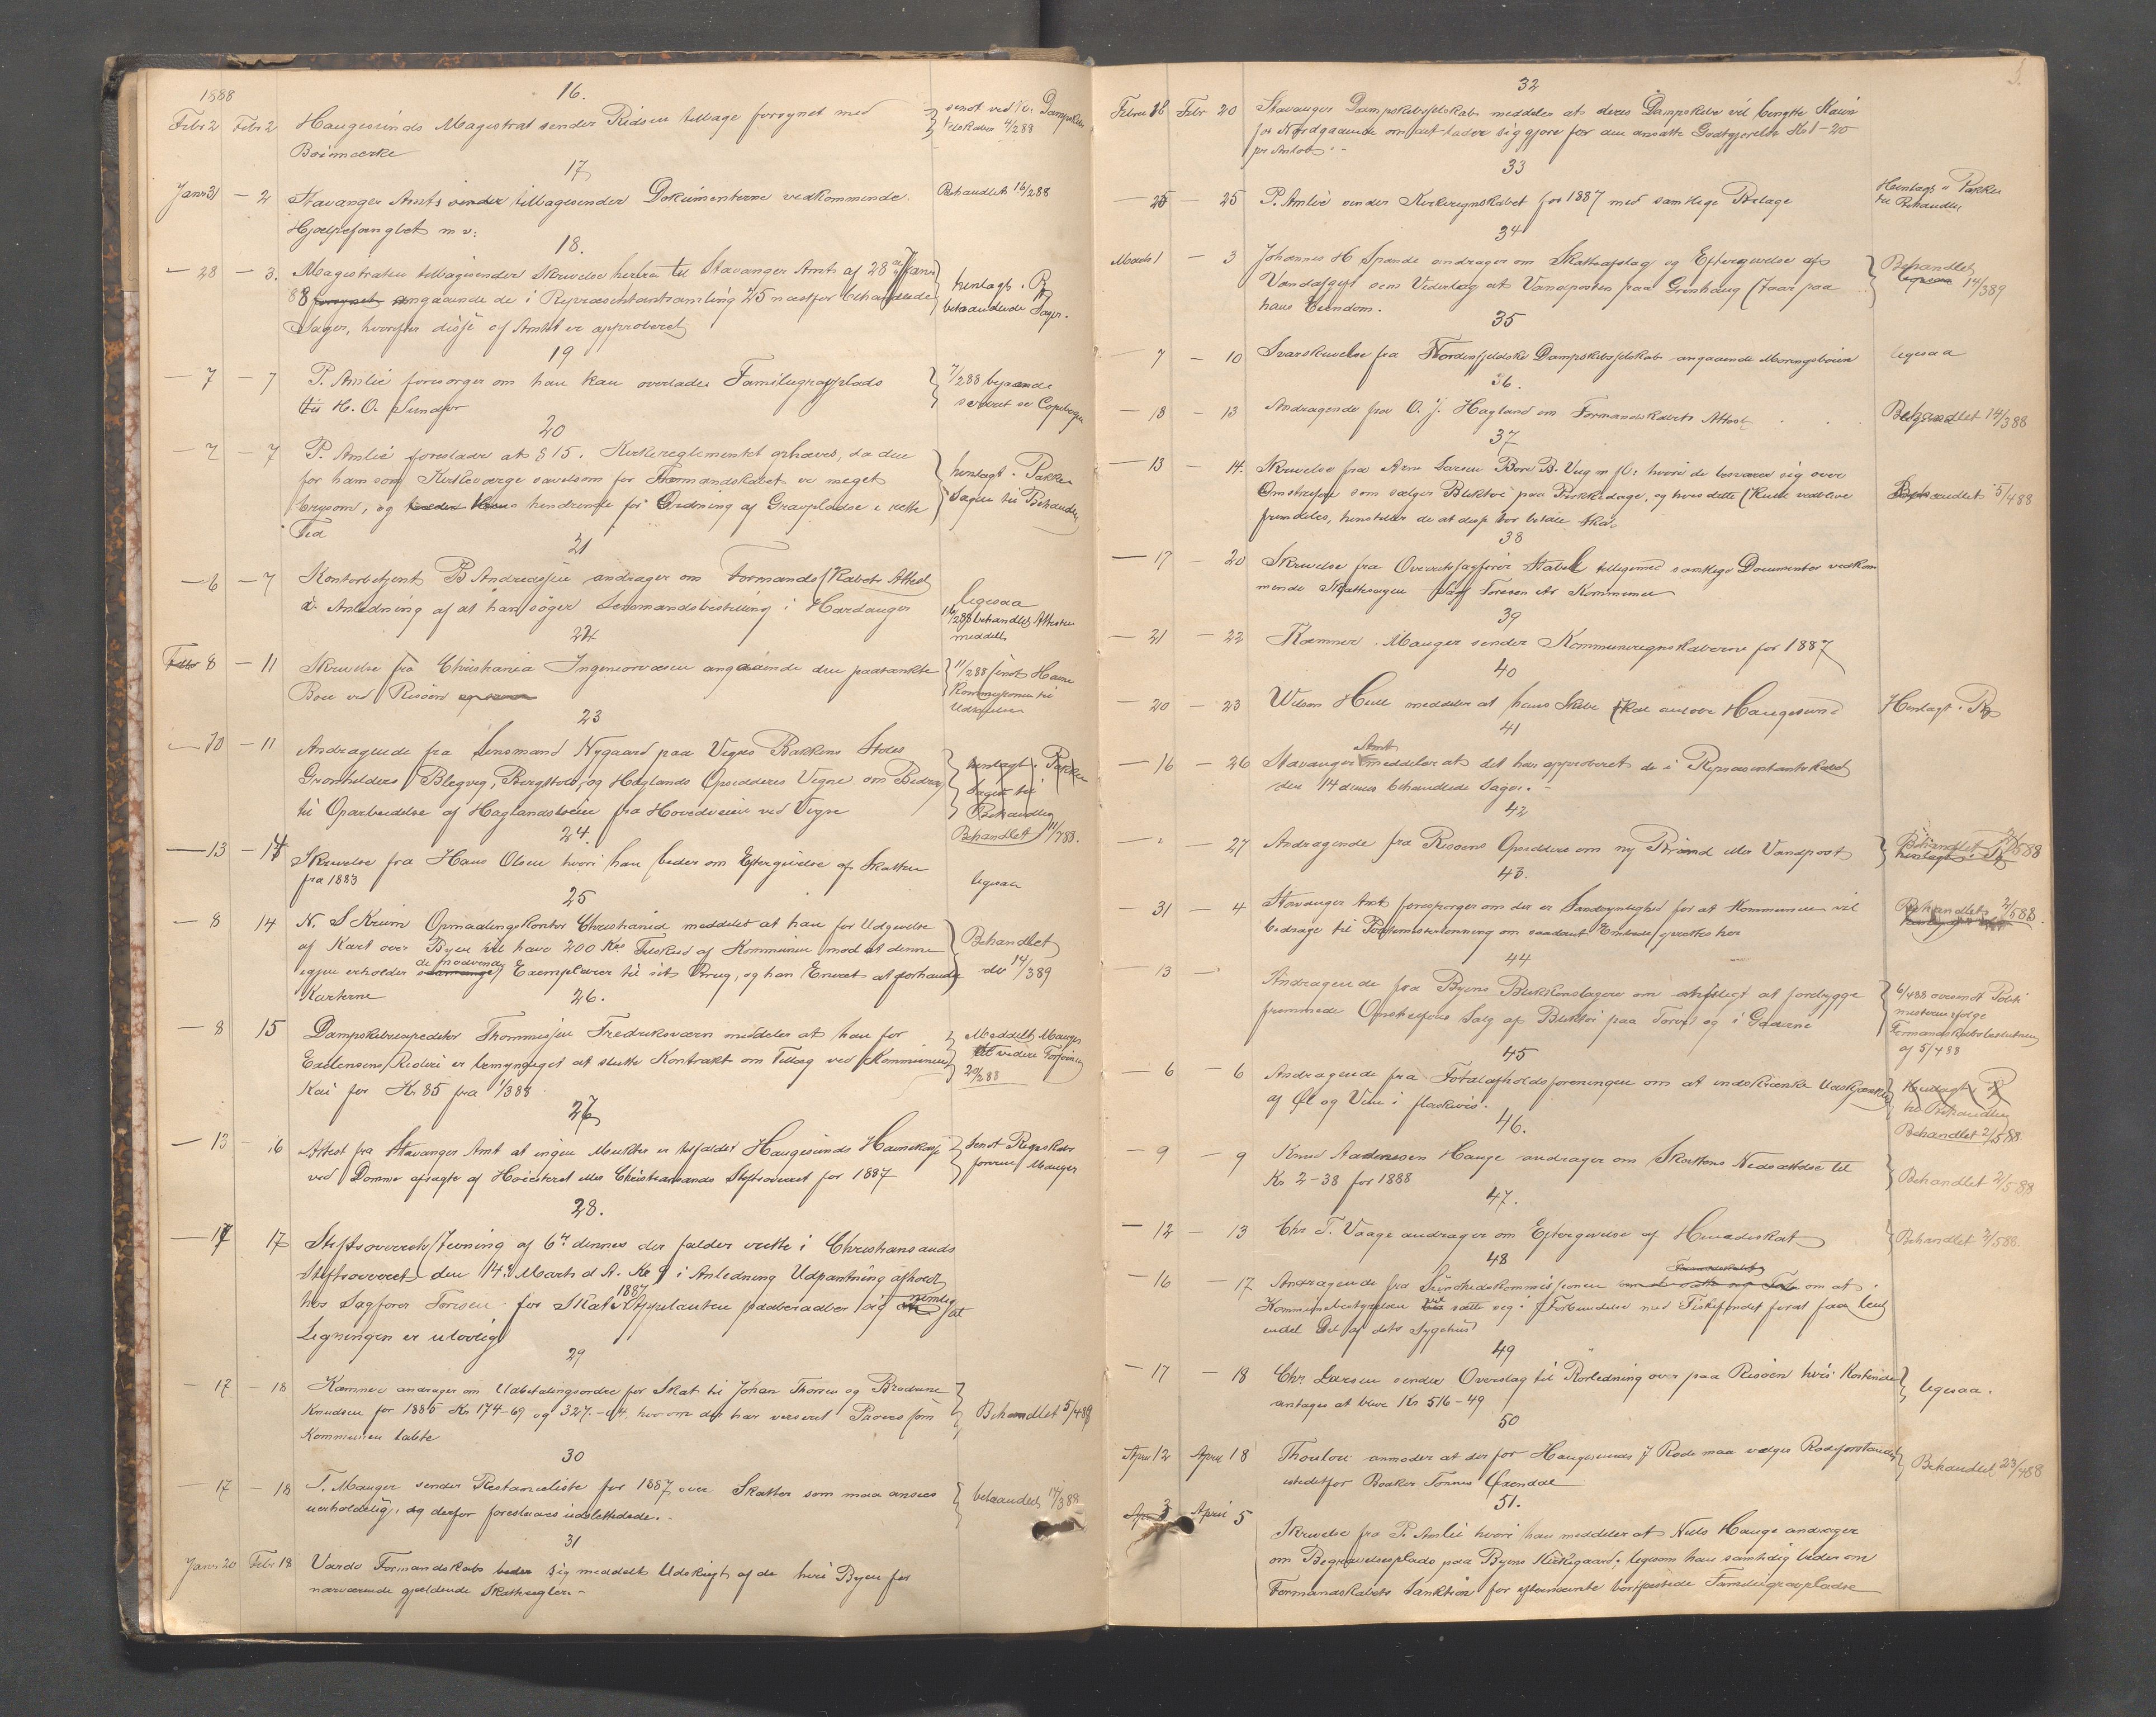 1888
16.
Febr 2 Febr 2 Haugesunds Magistrat sender Ridsen tilbage forsynet med
Boimærke
sendt ved Dampskibs
selskabet 4/2 88
17
Janr 31 — 2 Stavanger Amts sender tilbagesender Dokumenterne vedkommende
Hjælpefængslet m v:
Behandlet 16/2 88
18.
— 28 — 3. Magistraten tilbagesender Skrivelse herfra til Stavanger Amt af 28 Janr
88 angaaende de i Repræsentantsamling 25 næstfor behandlede
Sager, hvorefter disse af Amtet er approberet
henlagt i P
behandlede Sager.
19
— 7 — 7 P. Amlie foresporger om han kan overlades Familiegravplads
til H. O. Sundfor
7/2 88 bejaende
svaret se Copibogen
20
— 7 — 7 P. Amlie foreslaar at § 15. Kirkereglementet ophæves, da den
for ham som Kirkeværge saavelsom for Formandskabet er meget
brysom, og hindrende for Ordning af Gravpladse i rette
Tid
henlagt i Pakken
Sager til Behandling
21
— 6 — 7 Kontorbetjent B Andreassen andrager om Formandskabets Attest
i Anledning af at han søger Lensmandsbestilling i Hardanger
ligesaa
16/2 88 behandlet Attesten
meddelt
22
Febr 8 — 11 Skrivelse fra Christiania Ingeniorvæsen angaaende den paatænkte
Boie ved Risøen
11/2 88 sendt Havne
Kommissionen til
Udtalelse
23
— 10 — 11 Andragende fra Lensmand Nygaard paa Vegne Bakkens Stoles
Gronhelders, Blegvig, Bergstole, og Haglands Opsidderes Vegne om Bidrag
til Oparbeidelse af Haglandsveien fra Hovedveien ved Vigre
henlagt i Pakken
Sager til
Behandling
Behandlet 11/7 88.
24.
— 13 — 14 Skrivelse fra Hans Olsen hvori han beder om Eftergivelse af Skatten
fra 1883
ligesaa
25
— 8 14 N. S Krum Opmaalingskontor Christiania meddeler at han for Udgivelse
af Kart over Byen vil have 200 Krs Tilskud af Kommunen mod at denne
igjen erholder de fornødne Exemplarer til sit Brug, og han Eneret at forhandle
Karterne
Behandlet
do 14/3 89
26.
— 8 15 Dampskibsexpeditør Thommesen Fredriksværn meddeler at han for
Excelensens Rederi er bemyndiget at slutte Kontrakt om Tillæg ved Kommunens
Kai for Kr 85 fra 1/3 88
Meddelt Mauger
til videre Forføining
20/2 88
27
— 13 — 16 Attest fra Stavanger Amt at ingen Mulkter er tilfaldet Haugesunds Havnekasse
ved Domme afsagte af Hoiesteret eller Christiansands Stiftsoverret for 1887
Sendt Regnskabs
foreren Mauger
28.
— 17 17 Stiftsoverrets Stevning af 6te dennes der falder rette i Christiansands
Stiftsoverret den 14de Marts d A. Kl 9 i Anledning Udpantning afholdt
hos Sagfører Toresen for Skat 1887 Appelanten paaberaaber sig nemlig at
Ligningen er ulovlig
29
— 17 — 18 Kæmner andrager om Udbetalingsordre for Skat til Johan Thorsen og Brødrene
Knudsen for 1885 Kr 174–69 og 327.–04, hvorom der har verseret Proces som
Kommunen tabte
Behandlet 5/4 88
30
— 17 — 18 T. Mauger sender Restanceliste for 1887 over Skatter som maa ansees
uerholdelig, og derfor foreslaaes udslettede.
behandlet 14/3 88
31
Janr 20 Febr 18 Vardø Formandskab beder sig meddelt Udskrift af de hvri Byen for
nærværende gjældende Skatteregler
3.
32
Febru 18 Febr 20 Stavanger Dampskibsselskab meddeler at deres Dampskibe vil benytte Kaien
for Nordgaaende om det lader sig gjøre for den ansatte Godtgjørelse Kr 1–20
pr Anløb.
33
— 25 — 25 P. Amlie sender Kirkeregnskabet for 1887 med samtlige Bilage
Henlagt i Pakken
til Behandling
34
Marts 1 — 3 Johannes H Spande andrager om Skatteafslag og Eftergivelse af
Vandafgift som Vederlag at Vandposten paa Grønhaug staar paa
hans Eiendom.
Behandlet
ligesaa 14/3 89
35
— 7 — 10 Svarskrivelse fra Nordenfjeldske Dampskibsselskab angaaende Moringsboien
ligesaa
36.
— 18 — 13 Andragende fra O. J. Hagland om Formandskabets Attest
Behandlet 14/3 88
37
— 13 — 14. Skrivelse fra Arne Larsen Bore B. Vug m fl: hvori de besværer sig over
Omstreifere som sælger Bliktøi paa Trækkedage, og hvis dette skulle vedblive
fremdeles, henstiller de at disse bør betale Skat
Behandlet 5/4 88
38
— 17 — 20 Skrivelse fra Overretssagfører Stabel tilligemed samtlige Documenter vedkom
mende Skattesagen Sagf Toresen ctr Kommunen
39
— 21 — 22 Kæmner Mauger sender Kommuneregnskaberne for 1887
40
— 20 — 23 Wilson Hull meddeler at hans Skibe skal anløbe Haugesund
Henlagt i P
41
— 16 — 26 Stavanger Amt meddeler at det har approberet de i Repræsentantskabet
den 14 dennes behandlede Sager.
42
— " — 27 Andragende fra Risøens Opsiddere om ny Brønd eller Vandpost
Behandlet 2/5 88
43.
— 31 — 4 Stavanger Amt forespørger om der er Sandsynlighed for at Kommunen vil
bidrage til Postmesterlønning om saadant Embede oprettes her
Behandlet 2/5 88.
44
— 13 — " Andragende fra Byens Blikkenslagere om at fordrygge
fremmede Omstreiferes Salg af Bliktøi paa Torvet og i Gaarene
6/4 88 oversendt Politi
mesteren ifølge
Formandskabsbeslutning
af 5/4 88
45
— 6 — 6 Andragende fra Totalafholdsforeningen om at indskrænke Udskjænkning
af Øl og Vin i flaskevis.
Henlagt i P
til Behandling
Behandlet 2/5 88
46.
— 9 — 9 Knud Aadnesen Hauge andrager om Skattens Nedsættelse til
Kr 2–38 for 1888
Behandlet 2/5 88
47.
— 12 — 13 Chr T. Vaage andrager om Eftergivelse af Hundeskat
Behandlet 2/5 88.
48
— 16 — 17 Andragende fra Sundhedskommissionen om at
Kommunebestyrelsen vil sætte sig i Forbindelse med Fiskefondet forat faa leie
endel Del af dets Sygehus
49
— 17 — 18 Chr Larsen sender Overslag til Rørledning over paa Risøen hvis Kostende
antages at blive Kr 516–49
ligesaa.
50
April 12 April 18 Thoulow anmoder at der for Haugesunds 7 Rode maa vælges Rodeforstander
istedetfor Bøkker Tønnes Øxendal
Behandlet 23/4 88
51.
3 April 5 Skrivelse fra P. Amlie hvori han meddeler at Nils Hauge andrager
om Begravelsesplads paa Byens Kirkegaard, ligesom han samtidig beder om
Formandskabets Sanktion for efternævnte bortfæstede Familiegravpladse